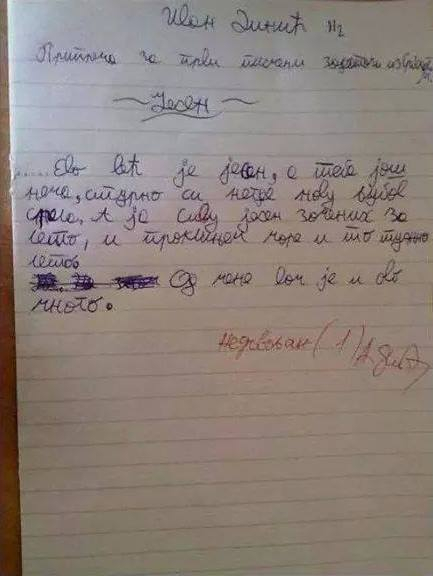 Иван Динић II2
Припрема за први писмени задатак из српског
~ Јесен ~
...... Ево већ је јесен, а тебе још
нема, сигурно си негде нову љубав
срела, А ја сиву јесен замених за
лето, и прокишњей море и то тужно
летов
Од мене доч је и ово
много.
Недовољан (1)